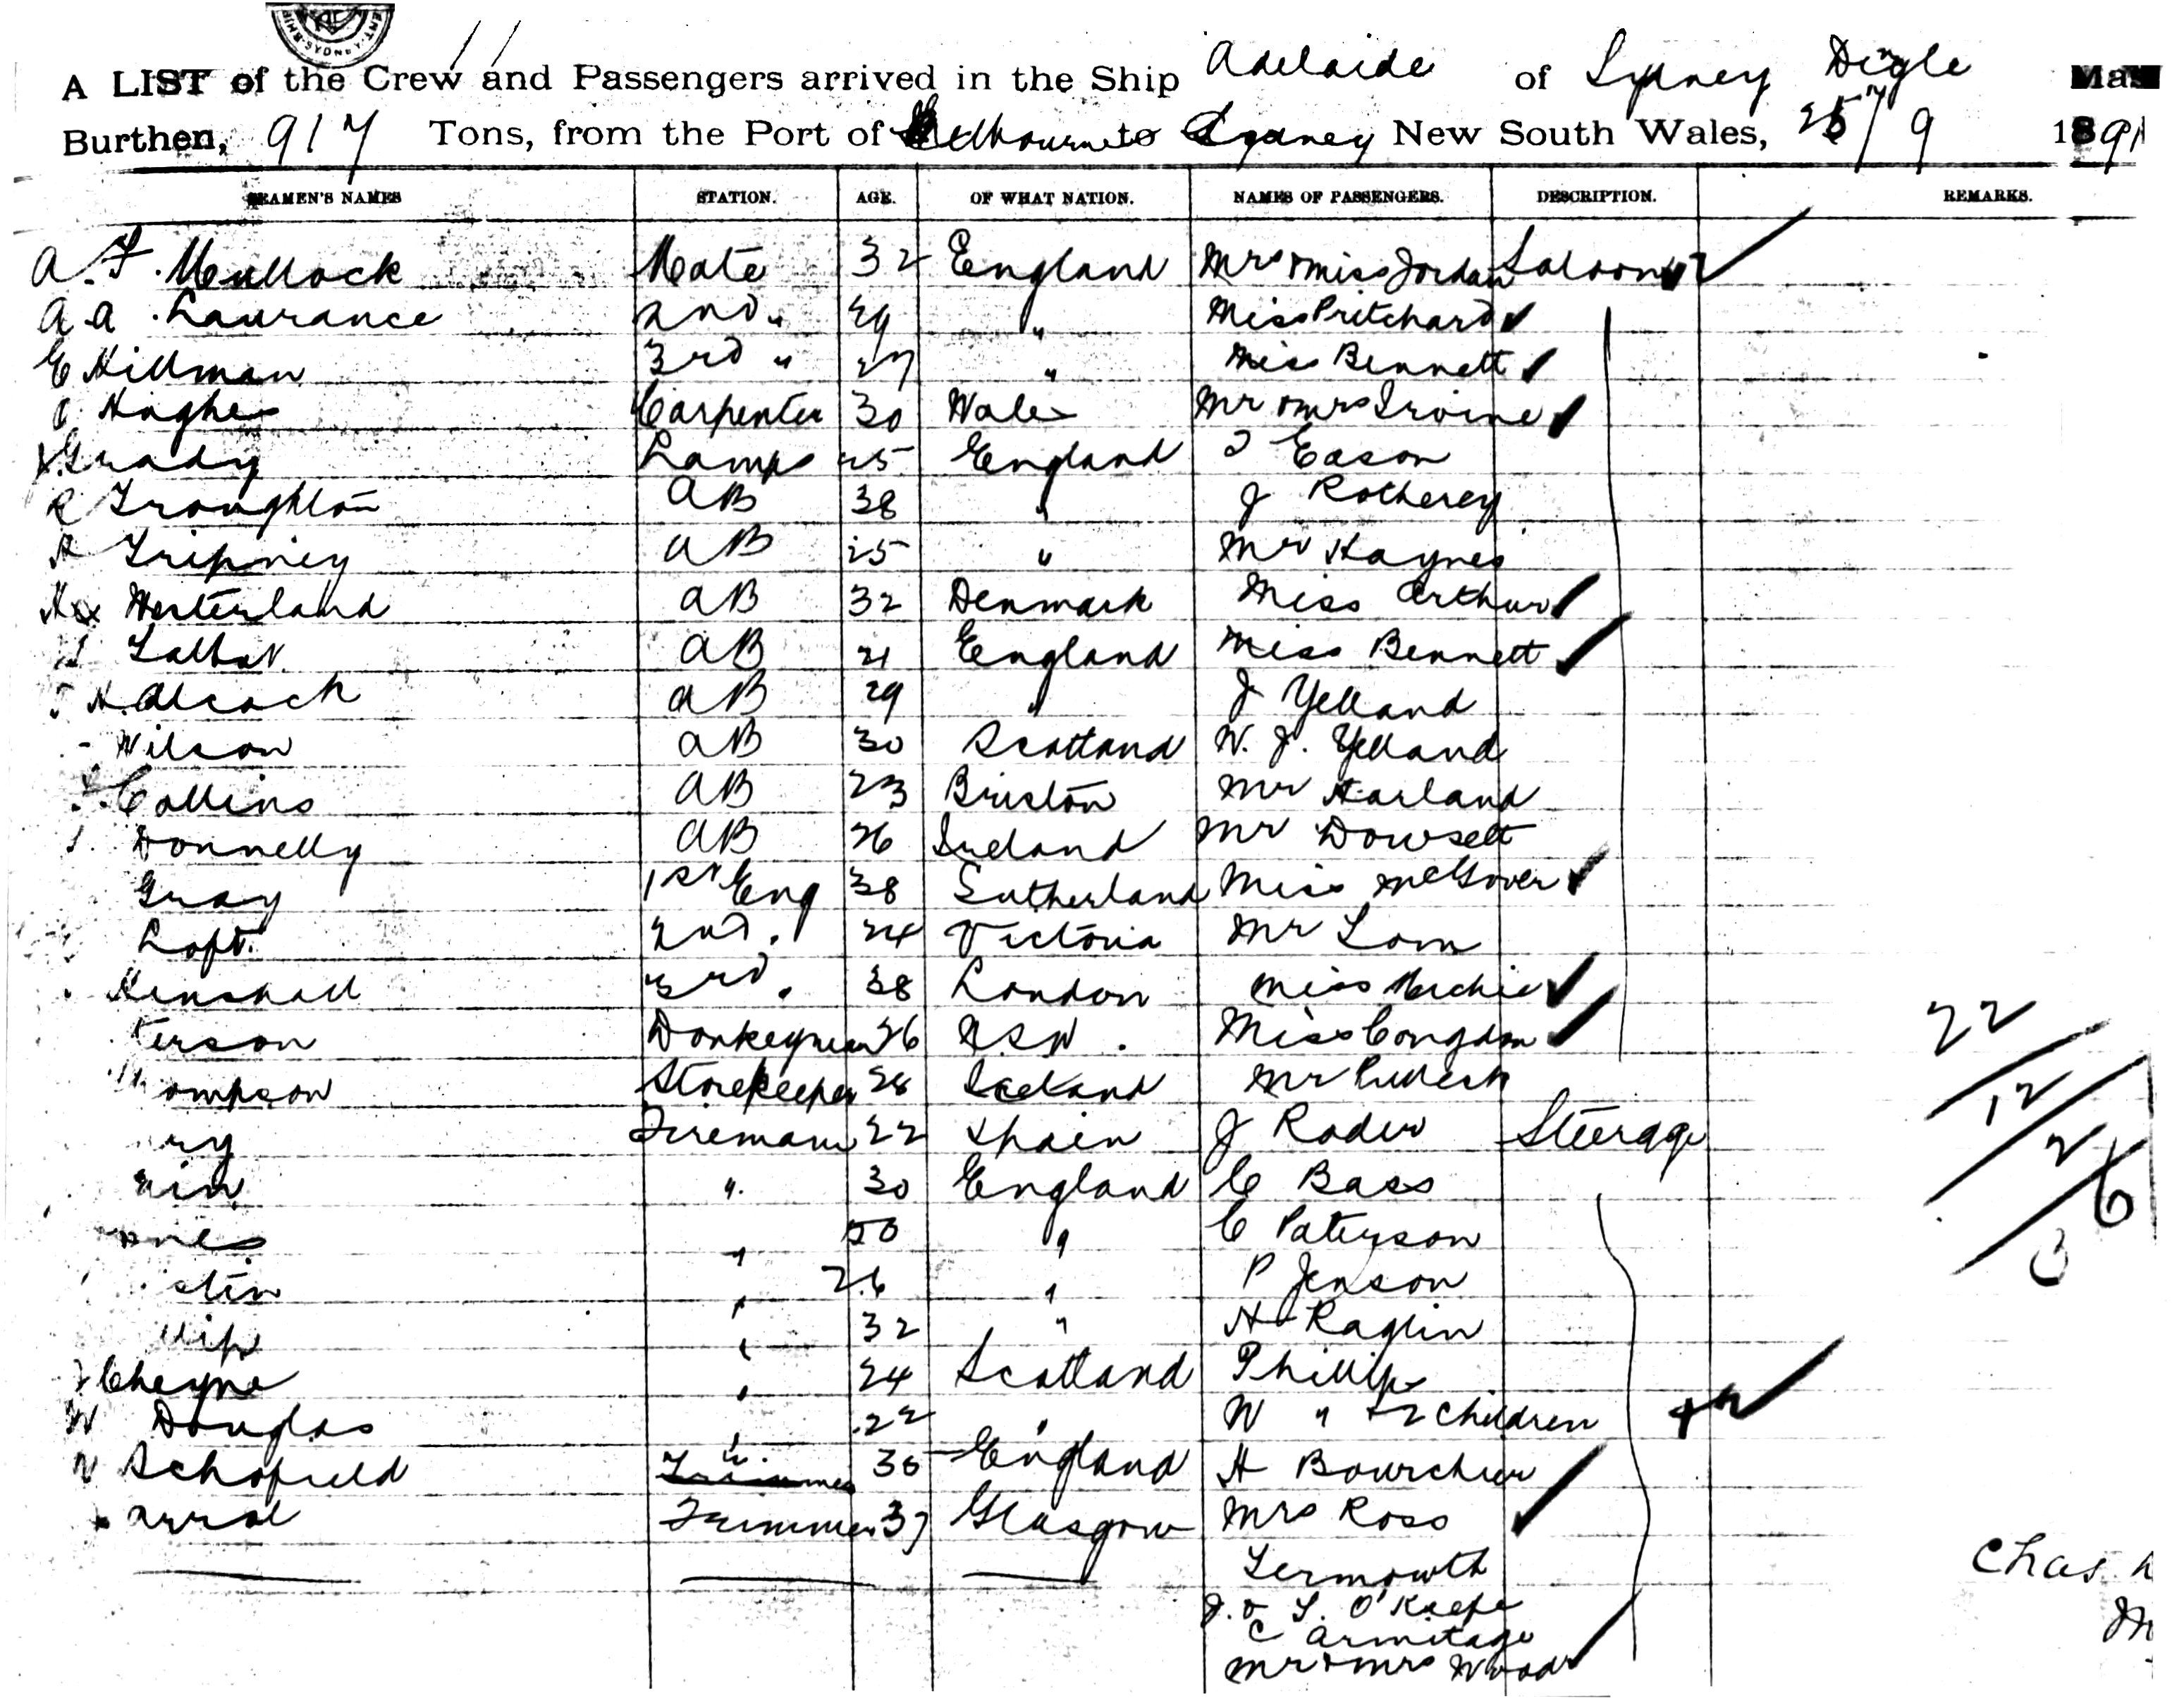 A LIST of the Crew and Passengers arrived in the Ship Adelaide of Sydney Digle Mas
Burthen, 917 Tons, from the Port of Melbourne to Sydney New South Wales, 25/9 1891
SEAMEN'S NAMES STATION. AGE. OF WHAT NATION. NAMES OF PASSENGERS. DESCRIPTION. REMARKS.
A. F. Mullock Mate 32 England Mrs & Miss Jordan Saloon
A. A. Laurance 2nd " 29 " Miss Pritchard
E Hillman 3rd " 27 " Miss Bennett
Hughes Carpenter 30 Wales Mr & Mrs Irvine
Grady Lamps 25 England Eason
R Troughton AB 38 " J Rotherey
Tripney AB 25 " Mr Haynes
Westerland AB 32 Denmark Miss Arthur
Talbot AB 21 England Miss Bennett
H. Alcock AB 29 " J Yelland
Wilson AB 30 Scotland W. J. Yelland
Collins AB 23 Brixton Mr Harland
Donnelly AB 26 Ireland Mr Dowsett
Gray 1st Eng 38 Sutherland Miss McGover
Loft. 2nd " 24 Victoria Mr Lorn
Henshall 3rd " 38 London Miss
terson Donkeyman 26 N.S.W. Miss Congdon
ompson Storekeeper 28 Iceland Mr
ry Fireman 22 Spain J Roder Steerage
ain " 30 England C Bass
" 50 " C Paterson
stin " 26 " P Jenson
" 32 " H Raglin
Cheyne " 24 Scotland Phillips
W Douglas " 22 " W " + 2 Children
W Schofield " 36 England H Bourchier
arrol Trimmer 37 Glasgow Mrs Ross
Termowth
J. & L. O'Keefe
C Armitage
Mr & Mrs Woods
22
12
2
6
Chas